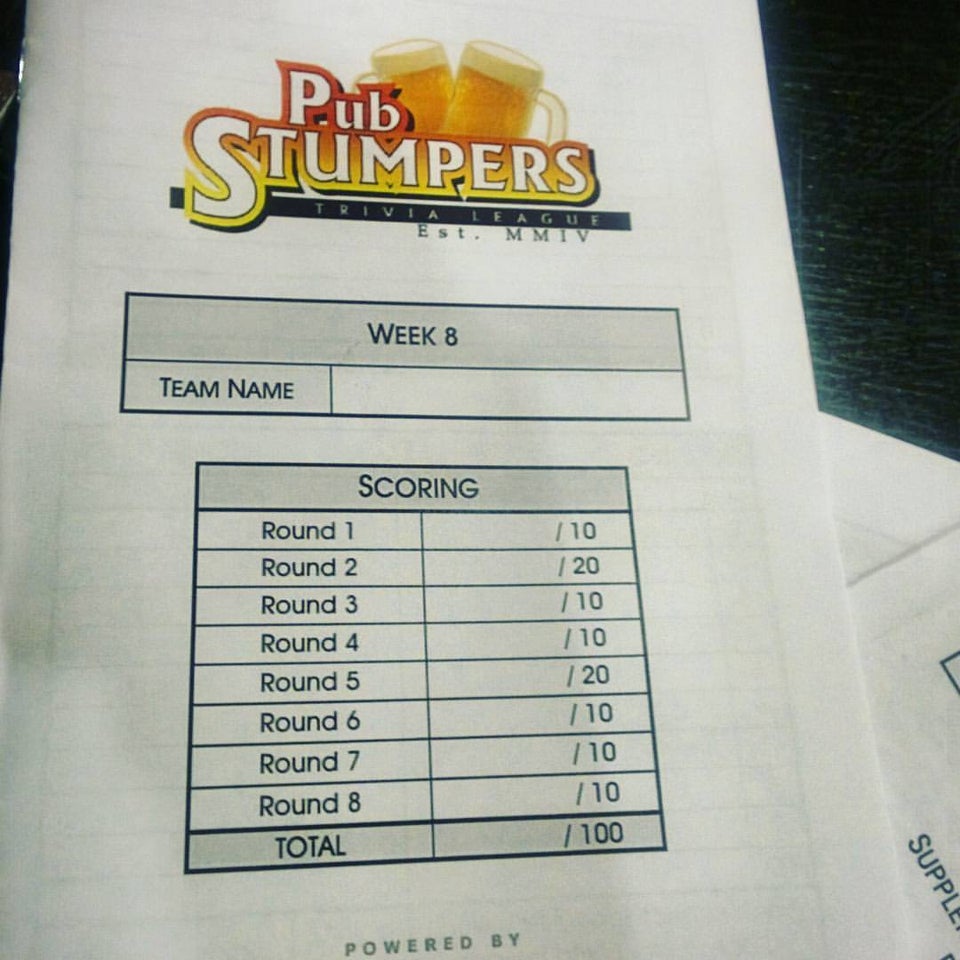 Pub
STUMPERS
TRIVIA LEAGUE
Est. MMIV
WEEK 8
TEAM NAME
SCORING
Round 1 / 10
Round 2 / 20
Round 3 / 10
Round 4 / 10
Round 5 / 20
Round 6 / 10
Round 7 / 10
Round 8 / 10
TOTAL / 100
POWERED BY